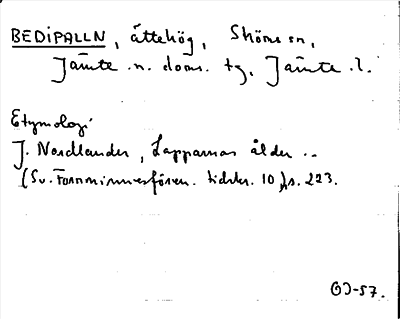 BEDIPALLN, ättehög, Ströms sn,
Jämte. n. doms. tg, Jämte. l.
Etymologi
J. Nordlander, Lapparnas ålder ..
(Sv. Fornminnesfören. tidskr. 10), s. 223.
OJ-57.